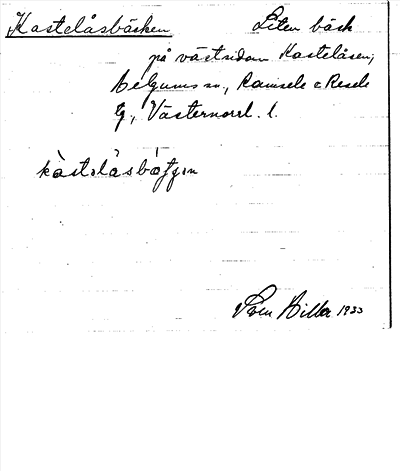 Kastelåsbäcken Liten bäck
på västsidan Kastelåsen,
Helgums sn., Ramsele o Resele
tg., Västernorrl. l.
Sven Hillar 1933